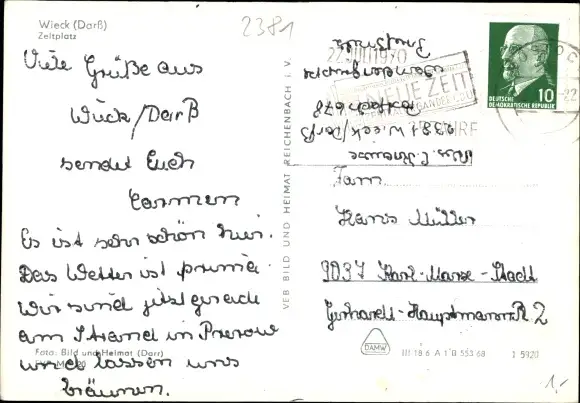 Wieck (Darß)
Zeltplatz
2381
Viele Grüße aus
Wieck/Darß
sendet Euch
Carmen
Es ist sehr schön hier.
Das Wetter ist prima.
Wir sind jetzt gerade
am Strand in Prerow
und lassen uns
bräunen.
Foto: Bild und Heimat (Darr)
VEB BILD UND HEIMAT REICHENBACH I. V.
1970
NEUE ZEIT
DEUTSCHE
DEMOKRATISCHE REPUBLIK
10
2381 Wieck/Darß
Postfach 678
Fam.
Hans Müller
9037 Karl-Marx-Stadt
Gerhardt-Hauptmannstr. 2
DAMW
III 18 6 A 1 B 553 68 1 5920
1,-